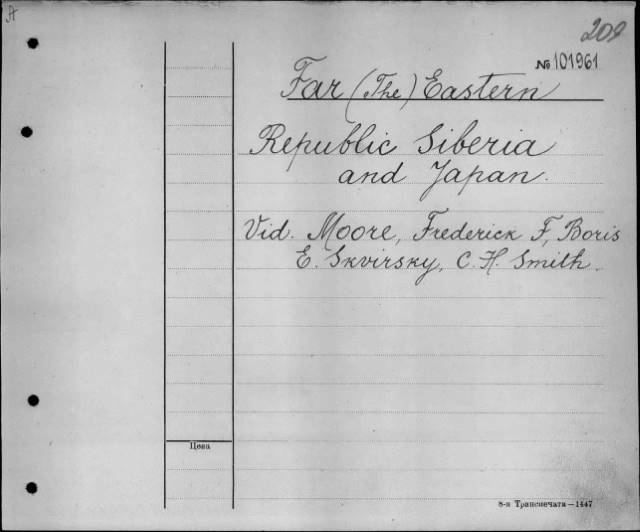 A
209
№ 101961
Far (The) Eastern
Republic Siberia
and Japan.
Vid. Moore, Frederick F., Boris
E. Skvirsky, C. H. Smith.
Цена
8-я Транспечати—1447